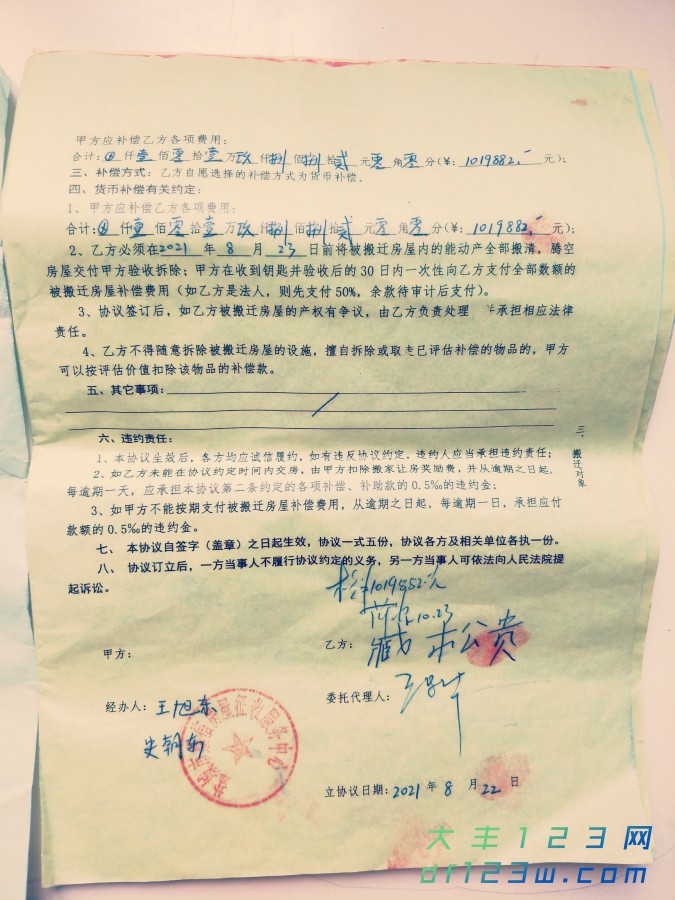 甲方应补偿乙方各项费用：
合计：⊗仟壹佰零拾壹万玖仟捌佰捌拾贰元零角零分（¥：1019882.-元）；
三、补偿方式：乙方自愿选择的补偿方式为货币补偿．
四、货币补偿有关约定：
1、甲方应补偿乙方各项费用：
合计：⊗仟壹佰零拾壹万玖仟捌佰捌拾贰元零角零分（¥：1019882.-元）；
2、乙方必须在2021年8月23日前将被搬迁房屋内的能动产全部搬清，腾空
房屋交付甲方验收拆除；甲方在收到钥匙并验收后的30日内一次性向乙方支付全部数额的
被搬迁房屋补偿费用（如乙方是法人，则先支付50%，余款待审计后支付）。
3、协议签订后，如乙方被搬迁房屋的产权有争议，由乙方负责处理 承担相应法律
责任。
4、乙方不得随意拆除被搬迁房屋的设施，擅自拆除或取走已评估补偿的物品的，甲方
可以按评估价值扣除该物品的补偿款。
五、其它事项：
三、搬迁对象
六、违约责任：
1、本协议生效后，各方均应诚信履约，如有违反协议约定，违约人应当承担违约责任；
2、如乙方未能在协议约定时间内交房，由甲方扣除搬家让房奖励费，并从逾期之日起，
每逾期一天，应承担本协议第二条约定的各项补偿、补助款的0.5‰的违约金；
3、如甲方不能按期支付被搬迁房屋补偿费用，从逾期之日起，每逾期一日，承担应付
款额的0.5‰的违约金。
七、本协议自签字（盖章）之日起生效，协议一式五份，协议各方及相关单位各执一份。
八、协议订立后，一方当事人不履行协议约定的义务，另一方当事人可依法向人民法院提
起诉讼。
1019882.元
10.23
甲方：
乙方：
经办人：王旭东
委托代理人：
史朝东
房屋征收服务中心
立协议日期：2021年8月22日
大丰123网
df123w.com